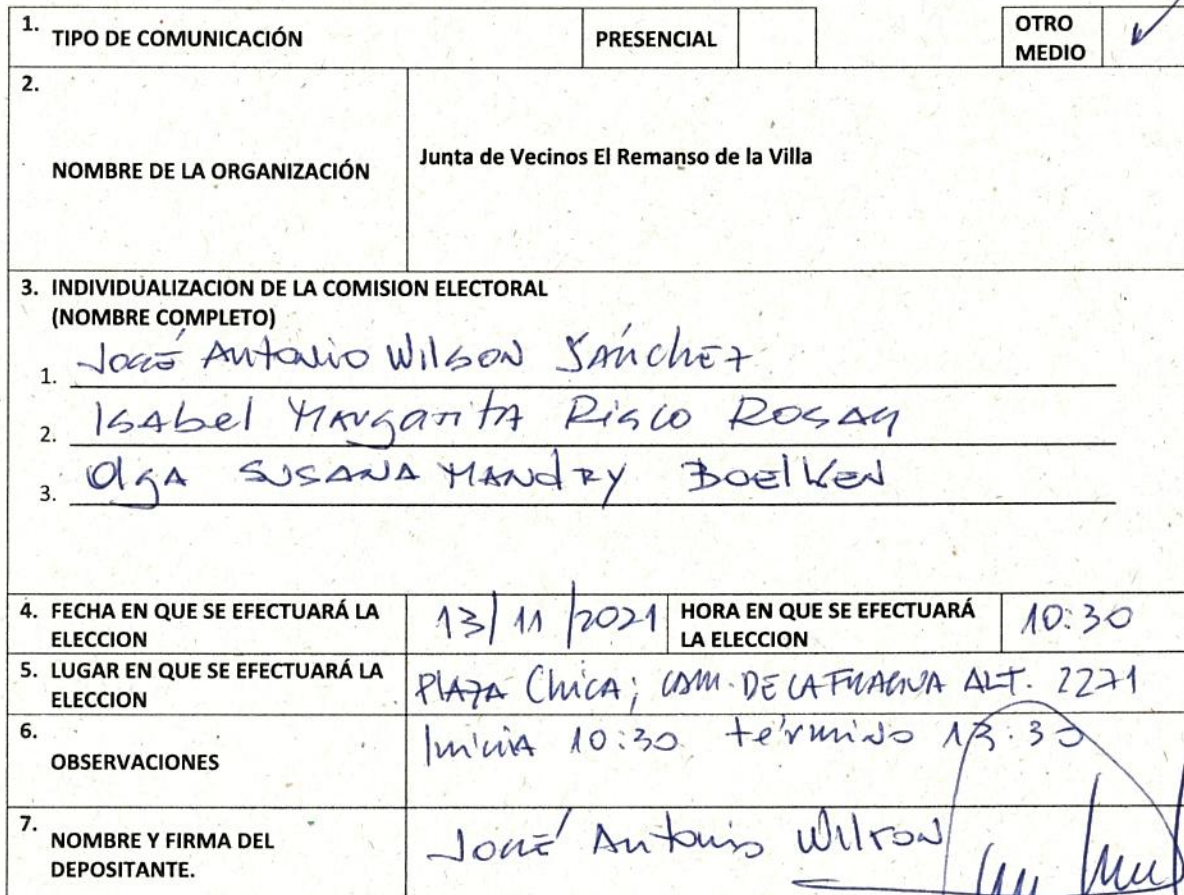 1. TIPO DE COMUNICACIÓN PRESENCIAL OTRO MEDIO ✓
2. NOMBRE DE LA ORGANIZACIÓN Junta de Vecinos El Remanso de la Villa
3. INDIVIDUALIZACION DE LA COMISION ELECTORAL
(NOMBRE COMPLETO)
1. José Antonio Wilson Sánchez
2. Isabel Margarita Risco
3. Olga Susana Mandry Boelken
4. FECHA EN QUE SE EFECTUARÁ LA ELECCION 13/11/2021 HORA EN QUE SE EFECTUARÁ LA ELECCION 10:30
5. LUGAR EN QUE SE EFECTUARÁ LA ELECCION Plaza Chica; CAM. DE LA FRAGUA ALT. 2271
6. OBSERVACIONES Inicia 10:30 término 13:30
7. NOMBRE Y FIRMA DEL DEPOSITANTE. José Antonio Wilson